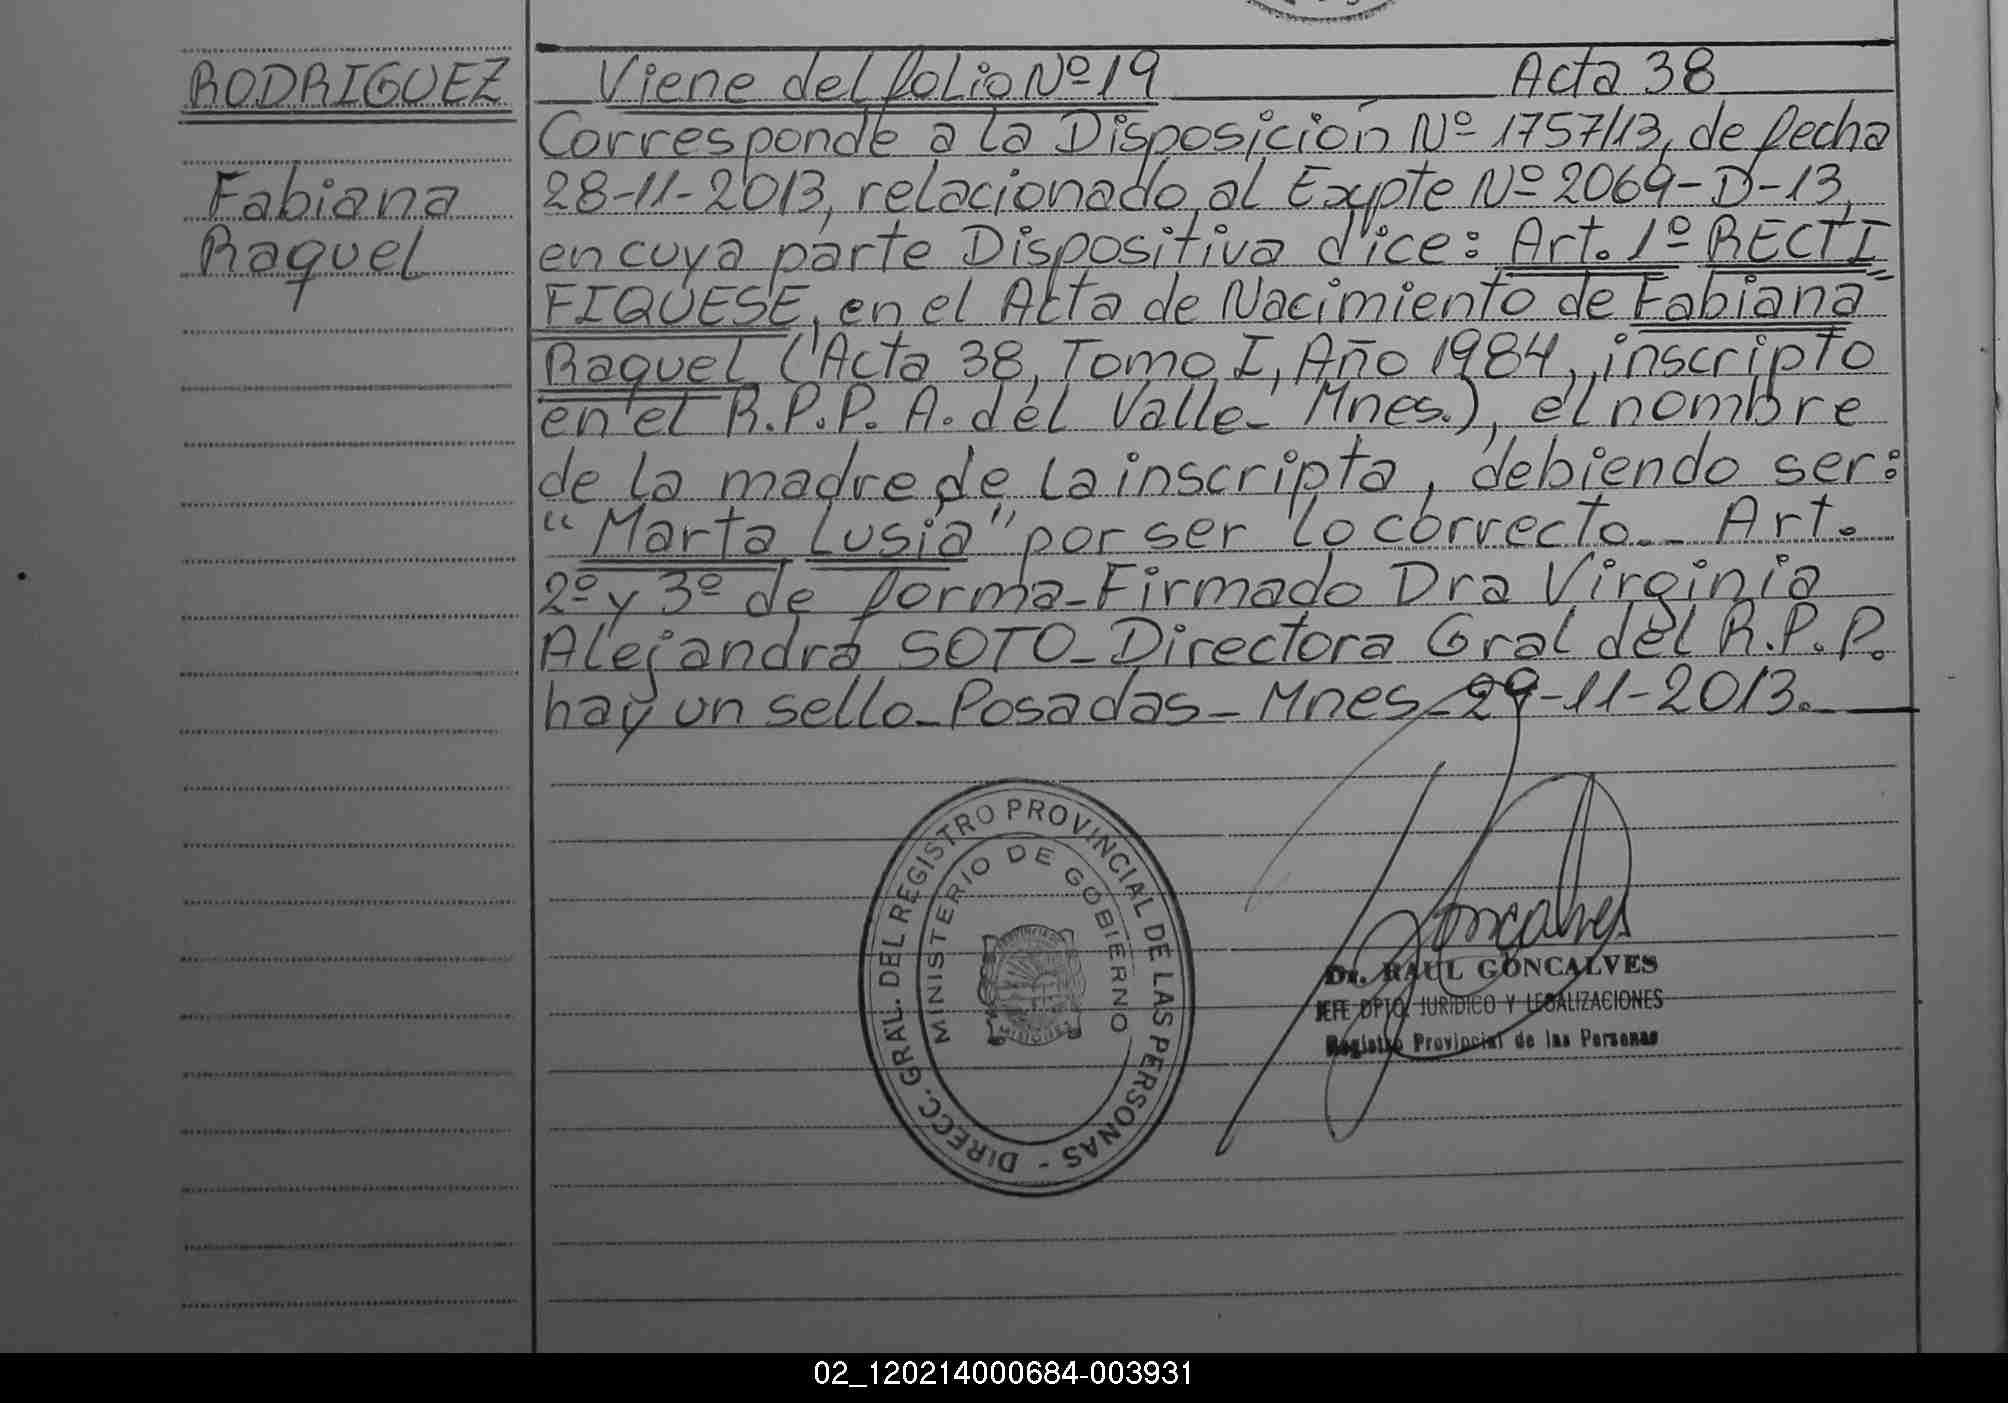 RODRIGUEZ
Fabiana
Raquel
Viene del folio Nº 19 Acta 38
Corresponde a la Disposición Nº 1757/13, de fecha
28-11-2013, relacionado al Expte Nº 2069-D-13,
en cuya parte Dispositiva dice: Art. 1º RECTI
FIQUESE, en el Acta de Nacimiento de Fabiana
Raquel (Acta 38, Tomo I, Año 1984, inscripto
en el R.P.P. A. del Valle- Mnes.), el nombre
de la madre de la inscripta, debiendo ser:
"Marta Lusia" por ser lo correcto.- Art.
2º y 3º de forma-Firmado Dra Virginia
Alejandra SOTO-Directora Gral del R.P.P.
hay un sello-Posadas-Mnes-29-11-2013.
DIRECC. GRAL. DEL REGISTRO PROVINCIAL DE LAS PERSONAS -
MINISTERIO DE GOBIERNO
MISIONES
Goncalves
Dr. RAUL GONCALVES
JEFE DPTO. JURIDICO Y LEGALIZACIONES
Registro Provincial de las Personas
02_120214000684-003931